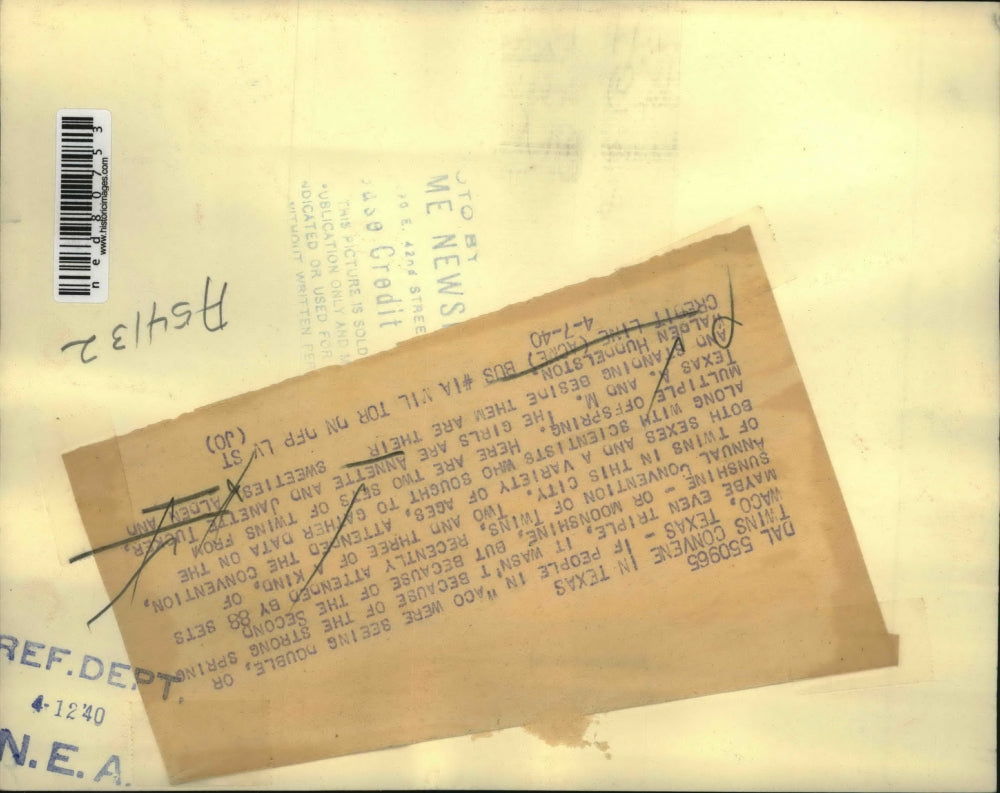 DAL 550965
TWINS CONVENE IN TEXAS
WACO, TEXAS - IF PEOPLE IN WACO WERE SEEING DOUBLE, OR
MAYBE EVEN TRIPLE, IT WASN'T BECAUSE OF THE STRONG SPRING
SUNSHINE - OR MOONSHINE, BUT BECAUSE OF THE SECOND
ANNUAL CONVENTION OF TWINS, RECENTLY ATTENDED BY 88 SETS
OF TWINS IN THIS CITY. TWO AND THREE OF A KIND, OF
BOTH SEXES AND A VARIETY OF AGES, ATTENDED THE CONVENTION,
ALONG WITH SCIENTISTS WHO SOUGHT TO GATHER DATA ON THE
MULTIPLE OFFSPRING. HERE ARE TWO SETS OF TWINS FROM
TEXAS A. AND M. THE GIRLS ARE ANNETTE AND JANETTE TUCKER,
AND STANDING BESIDE THEM ARE THEIR SWEETIES, ALDEN AND
WALDEN HUDDELSTON.
CREDIT LINE (ACME) BUS #1A MIL TOR DN OFP LV ST
4-7-40 (JO)
OTO BY
ME NEWS
E. 42nd STREE
Credit
THIS PICTURE IS SOLD
PUBLICATION ONLY AND
NDICATED OR USED FOR
WITHOUT WRITTEN PE
A54132
www.historicimages.com
ned80753
REF. DEPT.
4-12 40
N. E. A.